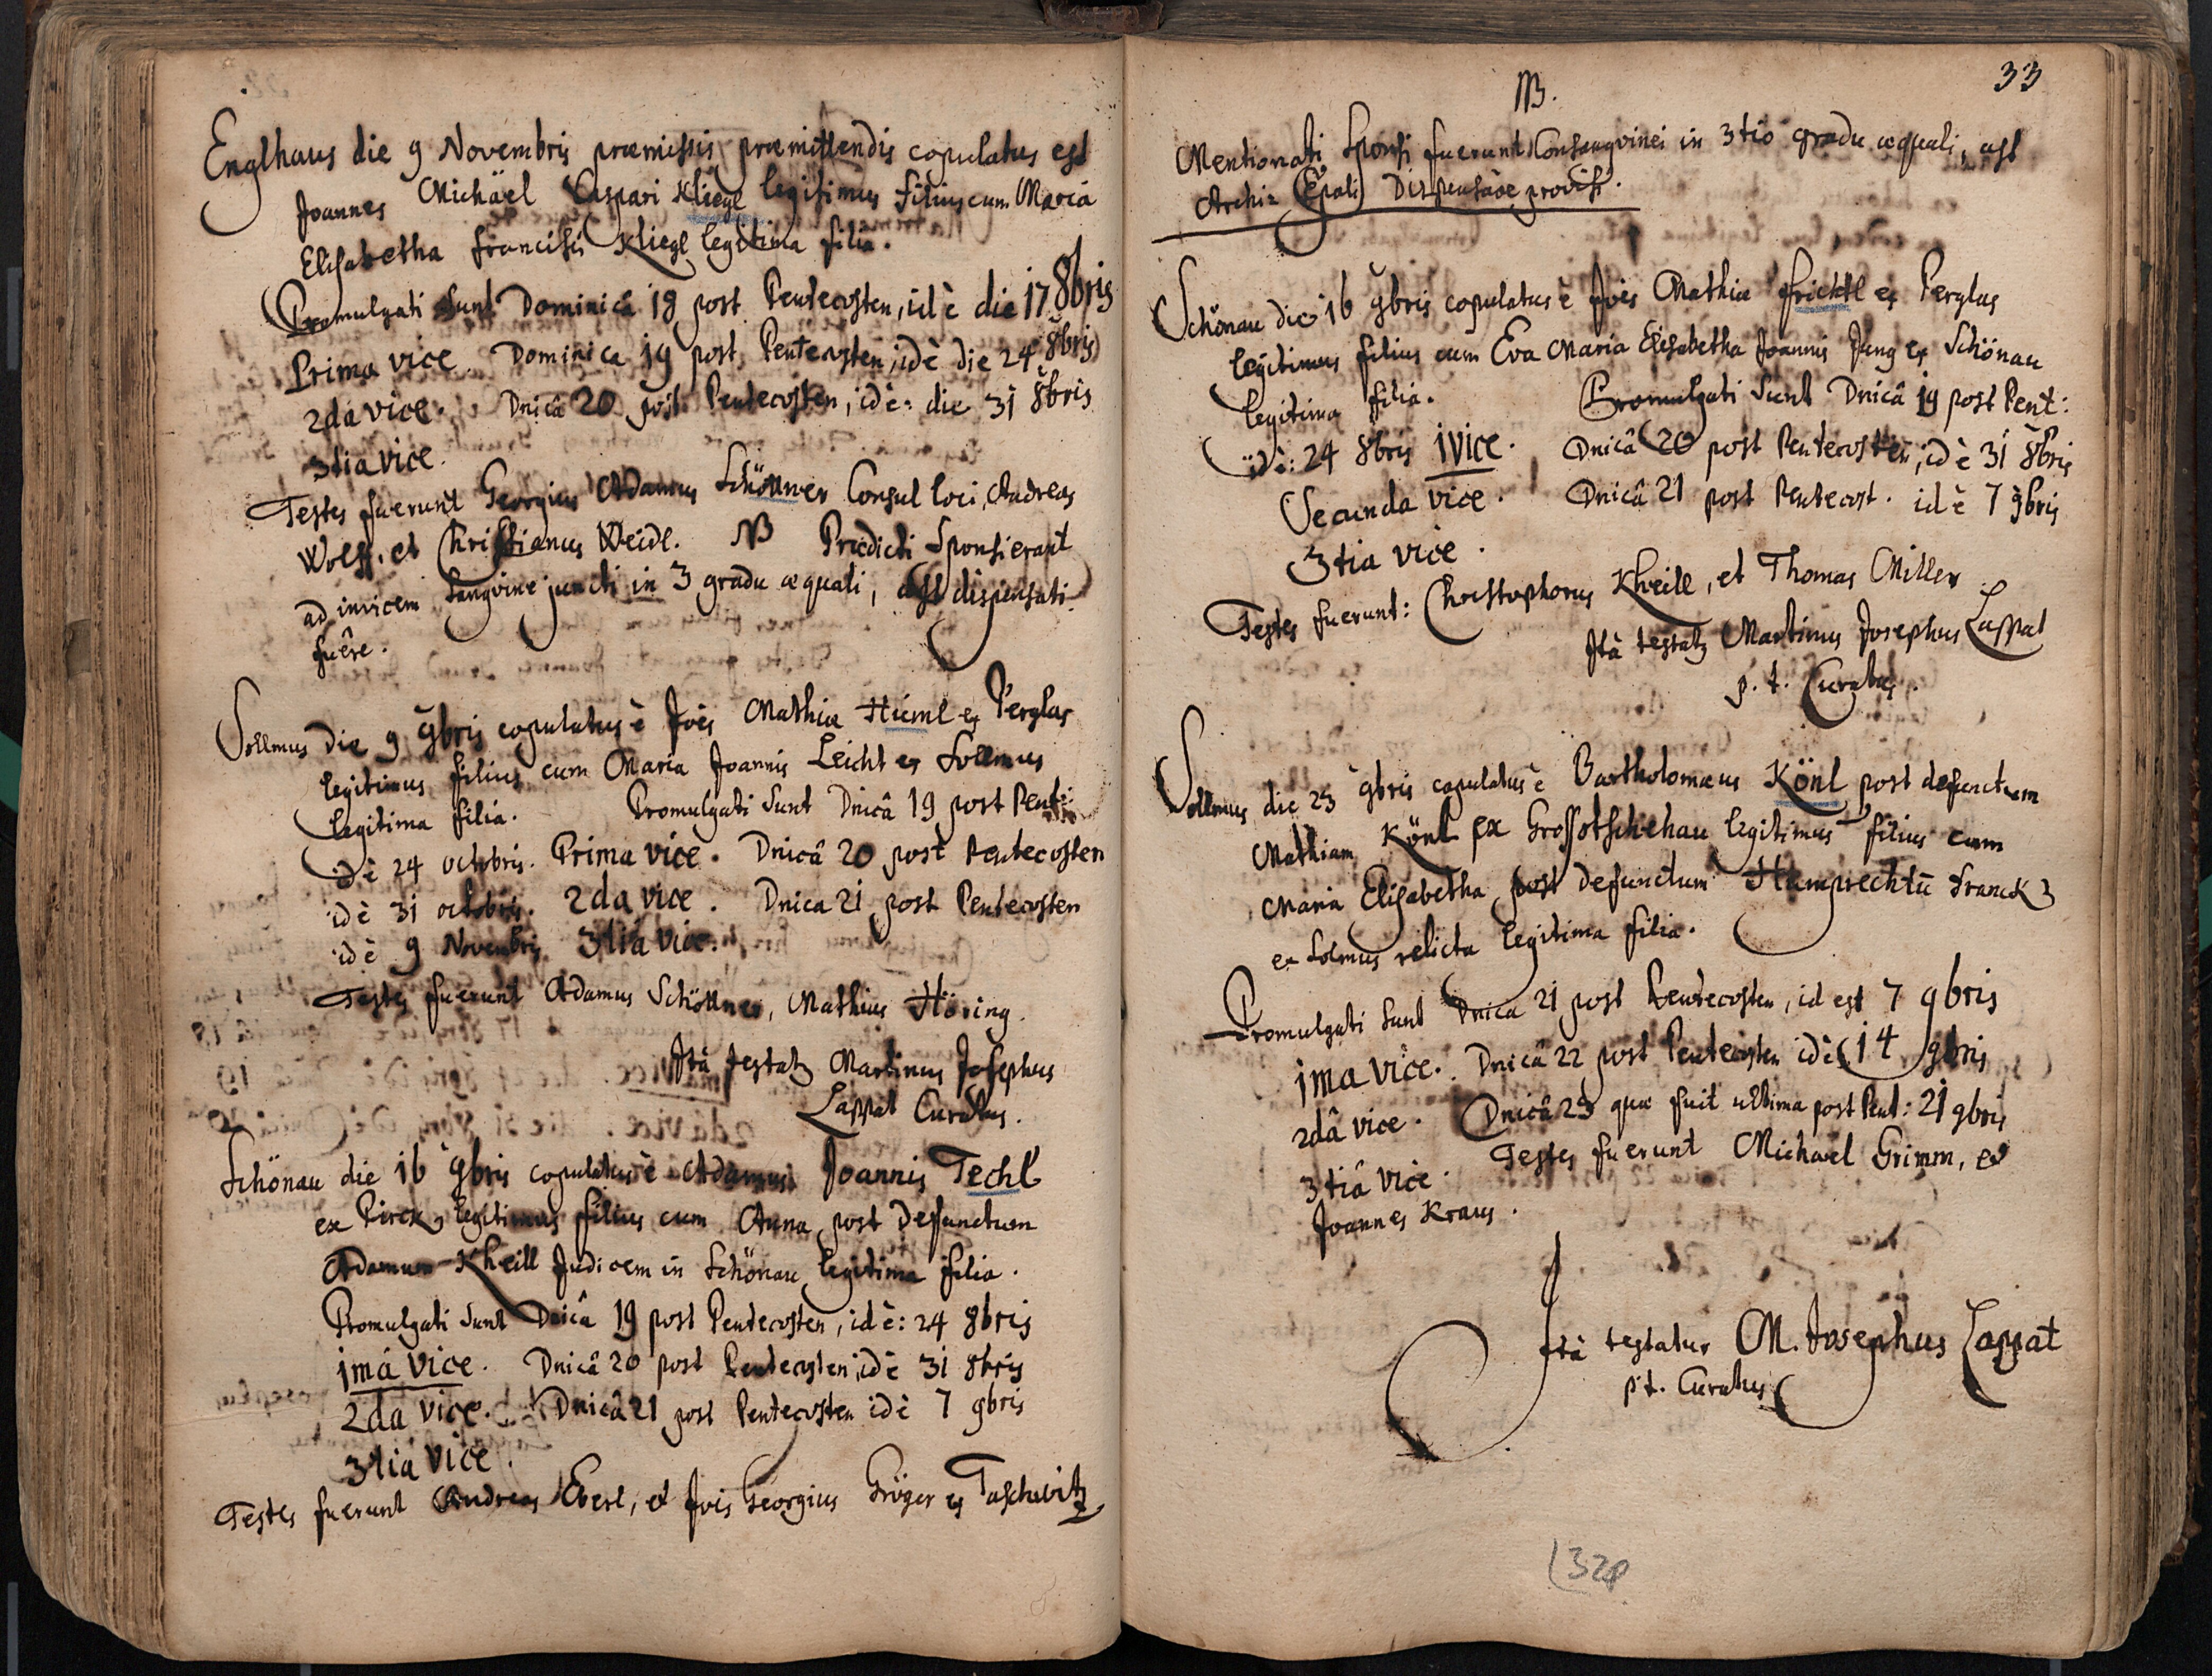 Englhaus die 9 Novembris præmissis præmittendis copulatus est
Joannes Michäel Caspari Kliegl legitimus filius cum Maria
Elisabetha Francisci Kliegl legitima filia.
Promulgati sunt Dominicâ 18 post Pentecosten, id è die 17 8bris
Prima vice. Dominica 19 post Pentecosten, id è die 24 8bris
2da vice. Dnicâ 20 post Pentecosten, id è: die 31 8bris
3tia vice.
Testes fuerunt Georgius Adamus Schöttner Consul loci, Andreas
Wolff. et Christianus Weidl. NB Prædicti Sponsi erant
ad invicem Sangvine juncti in 3 gradu æquali, ast dispensati
fuêre.
Sollmus die 9 9bris copulatus è Jões Mathiæ Hüml ex Perglas
legitimus filius cum Maria Joannis Leicht ex Sollmus
legitima filia. Promulgati sunt Dnicâ 19 post Pent:
id è 24 octobris. Prima vice. Dnicâ 20 post Pentecosten
id è 31 octobris. 2da vice. Dnica 21 post Pentecosten
id è 9 Novembris 3tia vice.
Testes fuerunt Adamus Schöttner, Mathias Höring.
Ità testatq Martinus Josephus
Lappat Curatus.
Schönau die 16 9bris copulatus è Adamus Joannis Techl
ex Pirck legitimus filius cum Anna post defunctum
Adamum Kheill Judicem in Schönau legitima filia.
Promulgati sunt Dnicâ 19 post Pentecosten, id è: 24 8bris
1mâ vice. Dnicâ 20 post Pentecosten id è 31 8bris
2da vice. Dnicâ 21 post Pentecosten id è 7 9bris
3tia vice.
Testes fuerunt Andreas Eberl, et Jões Georgius Gröger ex Taschwitz
33
NB.
Mentionati Sponsi fuerunt Consangvinei in 3tio gradu æquali, ast
Archi-Epali Dispensaõe provisi.
Schönau die 16 9bris copulatus è Jões Mathiæ Frichtl ex Perglas
legitimus filius cum Eva Maria Elisabetha Joannis Jung ex Schönau
legitima filia. Promulgati sunt Dnicâ 19 post Pent:
id è: 24 8bris 1 vice. Dnicâ 20 post Pentecosten, id è 31 8bris
Secunda vice. Dnicâ 21 post Pentecost. id è 7 9bris
3tia vice.
Testes fuerunt: Christophorus Kheill, et Thomas Miller.
Ità testatq Martinus Josephus Lappat
p. t. Curatus.
Sollmus die 23 9bris copulatus è Bartholomæus Könl post defunctum
Mathiam Könl ex Grossotschehau legitimus filius cum
Maria Elisabetha post defunctum Humprechtũ Franck
ex Solmus relicta legitima filia.
Promulgati sunt Dnica 21 post Pentecosten, id est 7 9bris
1ma vice. Dnicâ 22 post Pentecosten id è 14 9bris
2dâ vice. Dnicâ 23 quæ fuit ultima post Pent: 21 9bris
3tiâ vice. Testes fuerunt Michael Grimm, et
Joannes Kraus.
Ità testatur M. Josephus Lappat
p. t. Curatus